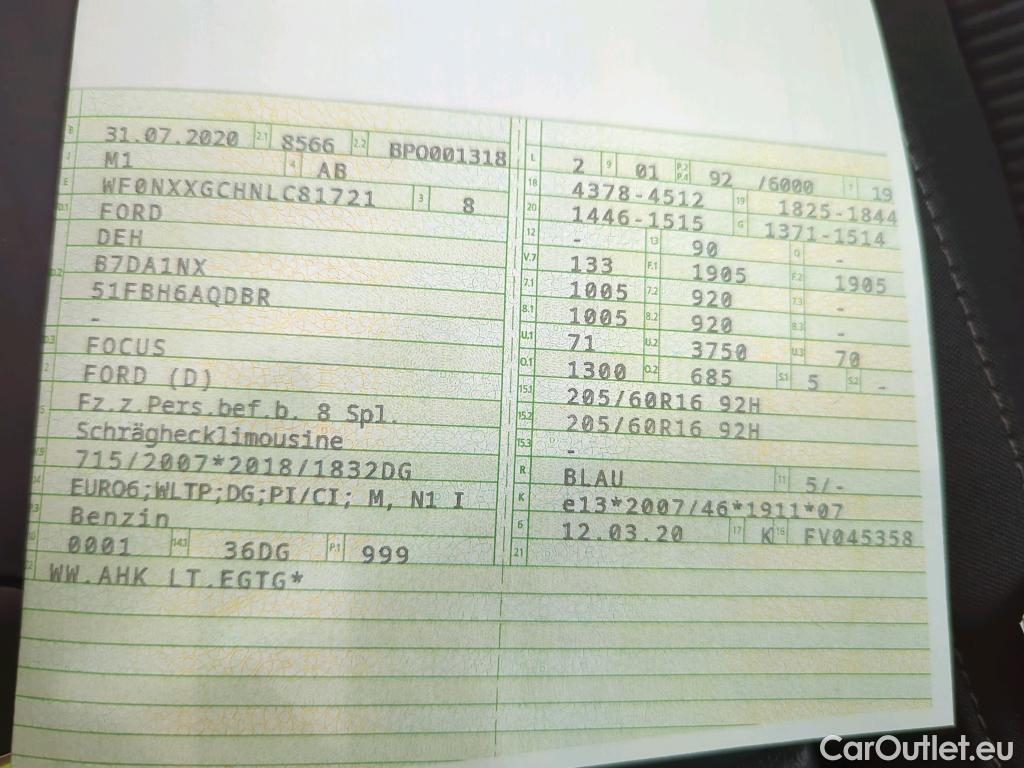 B 31.07.2020 2.1 8566 2.2 BPO001318
J M1 4 AB
E WF0NXXGCHNLC81721 3 8
D.1 FORD
DEH
D.2 B7DA1NX
51FBH6AQDBR
-
D.3 FOCUS
2 FORD (D)
5 Fz.z.Pers.bef.b. 8 Spl.
Schräghecklimousine
V.9 715/2007*2018/1832DG
14 EURO6;WLTP;DG;PI/CI; M, N1 I
P.3 Benzin
10 0001 14.1 36DG P.1 999
22 WW.AHK LT.EGTG*
L 2 9 01 P.2 P.4 92 /6000 T 19
18 4378-4512 19 1825-1844
20 1446-1515 G 1371-1514
12 - 13 90 Q -
V.7 133 F.1 1905 F.2 1905
7.1 1005 7.2 920 7.3 -
8.1 1005 8.2 920 8.3 -
U.1 71 U.2 3750 U.3 70
O.1 1300 O.2 685 S.1 5 S.2 -
15.1 205/60R16 92H
15.2 205/60R16 92H
15.3 -
R BLAU 11 5/-
K e13*2007/46*1911*07
6 12.03.20 17 K 16 FV045358
21
CarOutlet.eu